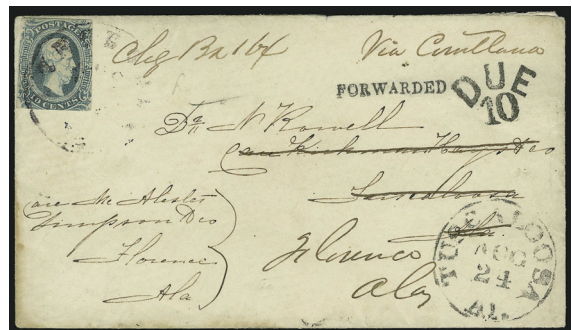 POSTAGE
10 CENTS
Chg Box 164
Via Courtland
FORWARDED
DUE
10
N Rowell
Tuscaloosa
Ala
Florence
Ala
care Mc Alester
Simpson & Co
Florence
Ala
TUSCALOOSA
AUG
24
AL.